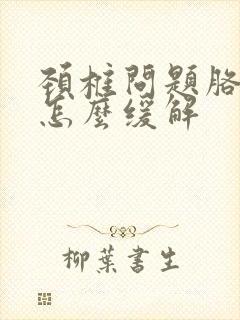 頚椎問題胳
怎麼缓解
柳葉書生